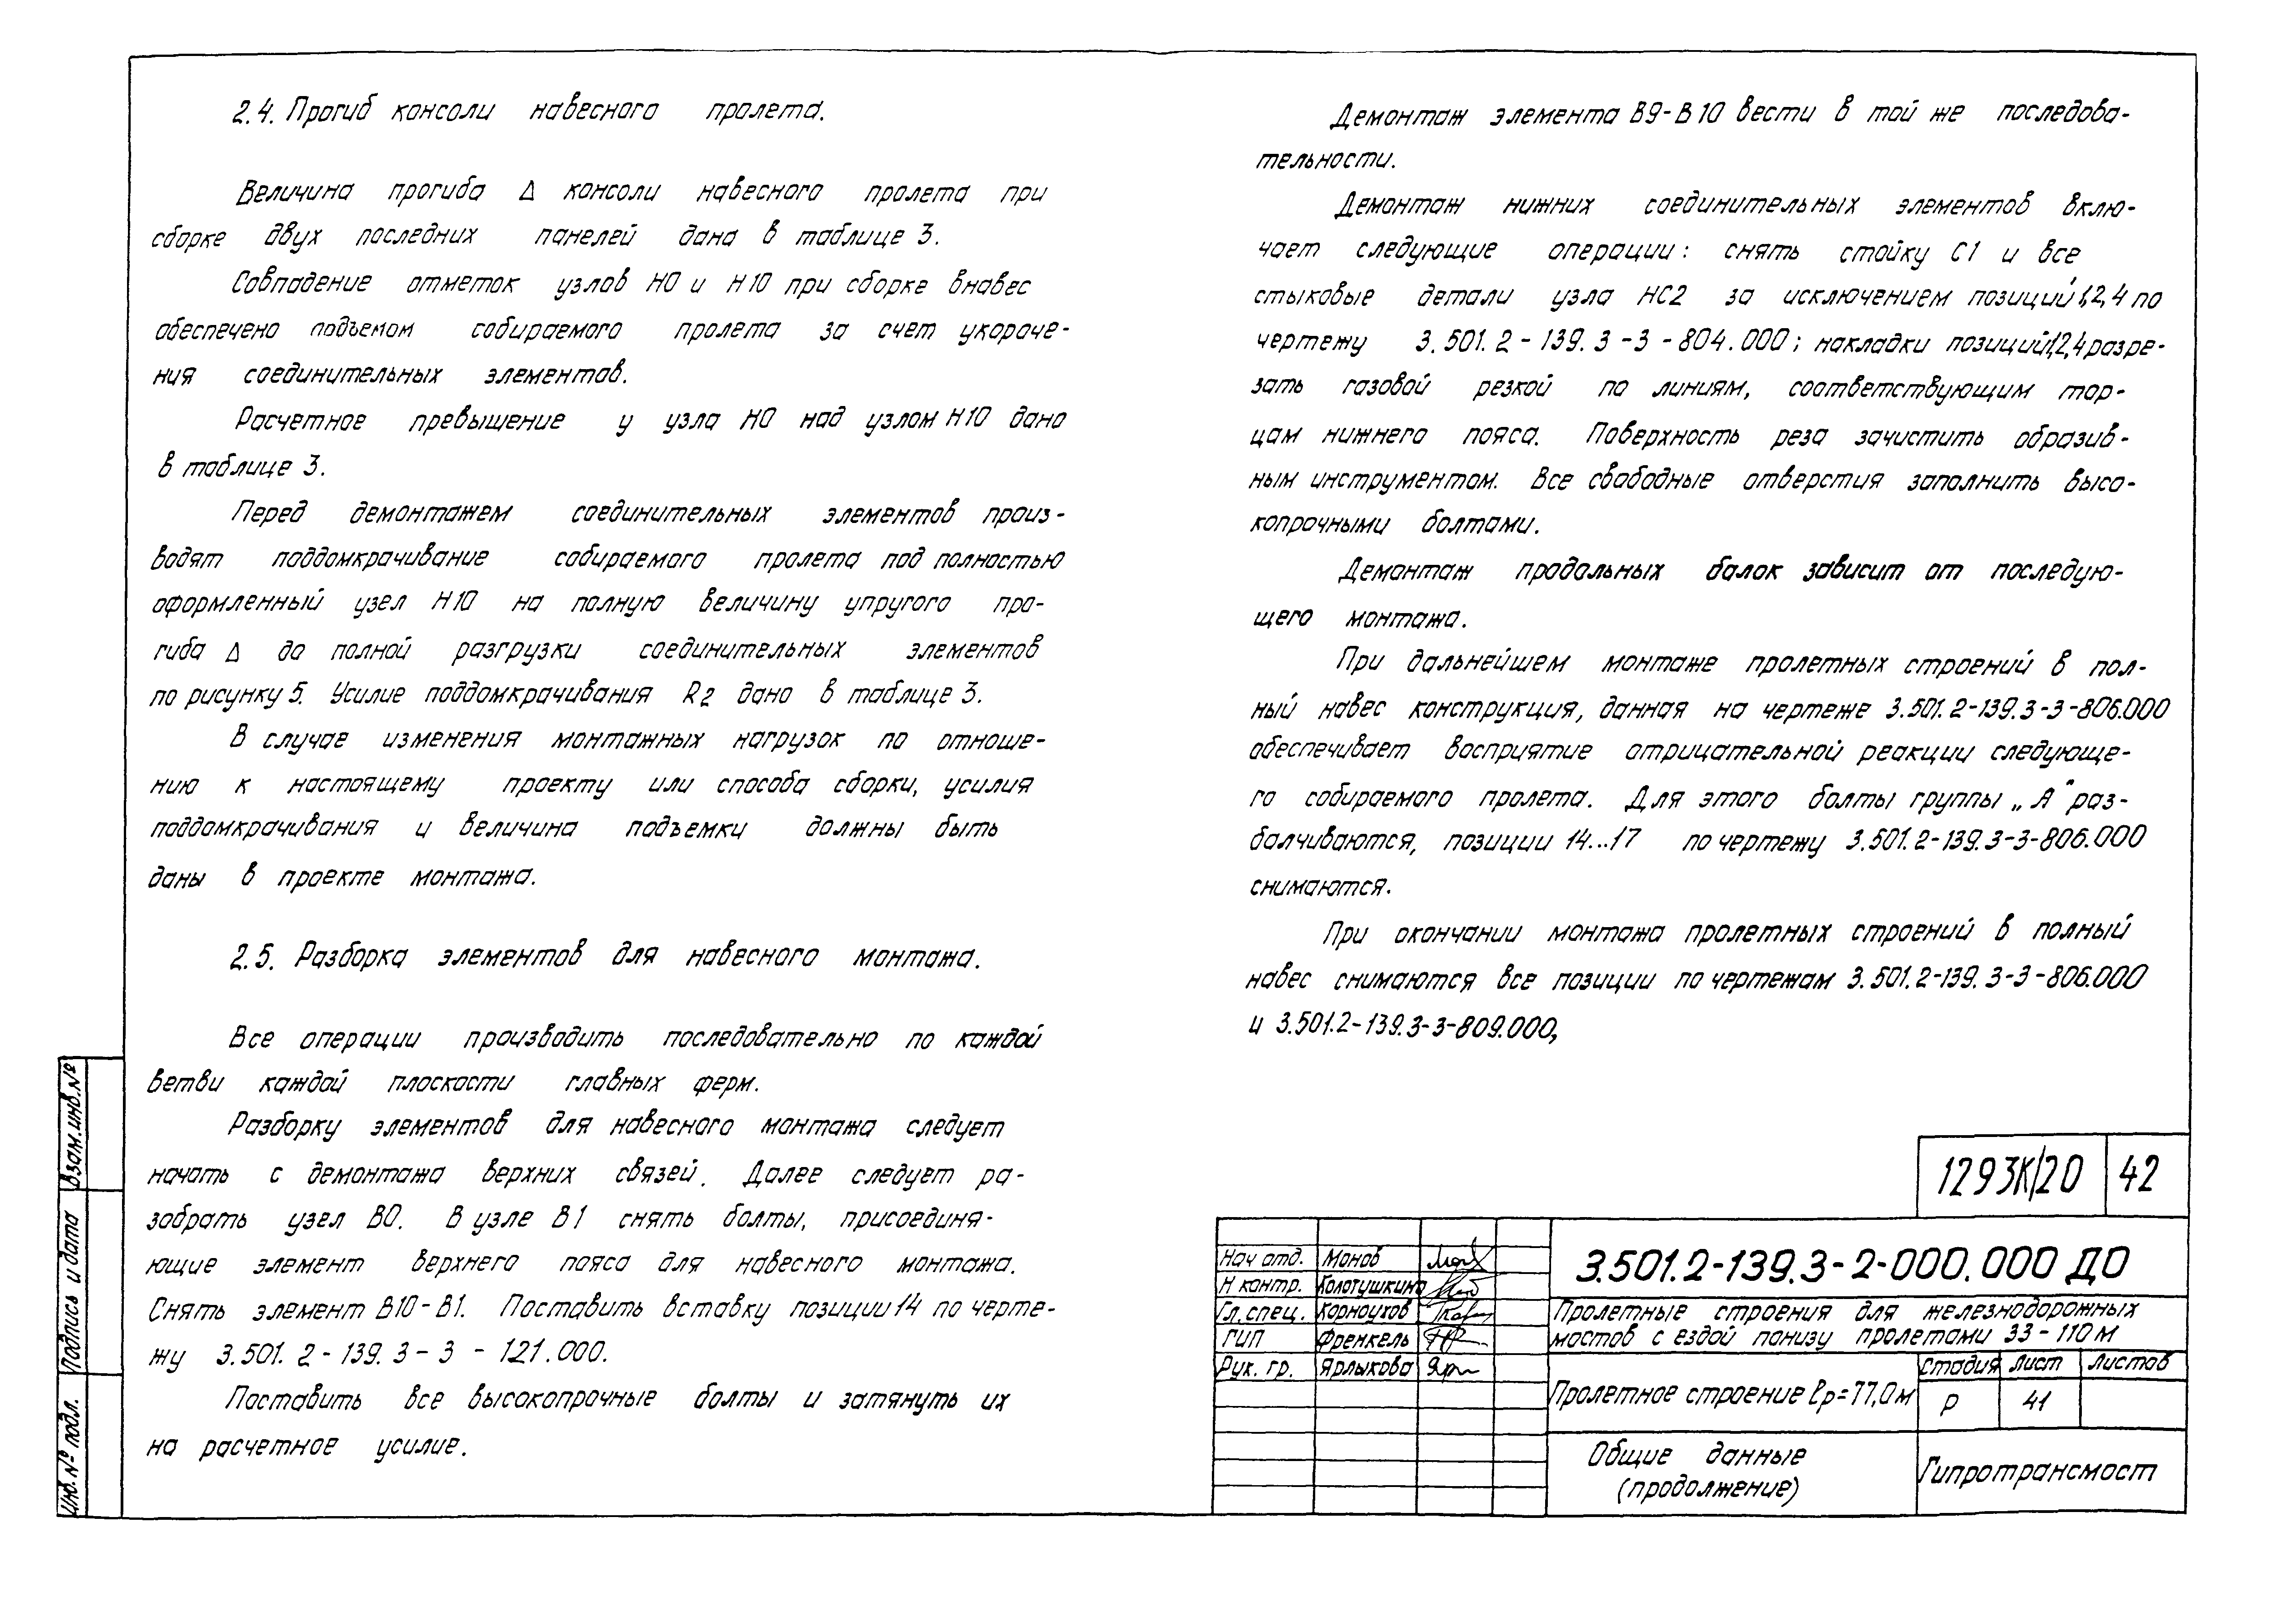 2.4. Прогиб консоли навесного пролета.
Величина прогиба Δ консоли навесного пролета при
сборке двух последних панелей дана в таблице 3.
Совпадение отметок узлов Н0 и Н10 при сборке внавес
обеспечено подъемом собираемого пролета за счет укороче-
ния соединительных элементов.
Расчетное превышение у узла Н0 над узлом Н10 дано
в таблице 3.
Перед демонтажем соединительных элементов произ-
водят поддомкрачивание собираемого пролета под полностью
оформленный узел Н10 на полную величину упругого про-
гиба Δ до полной разгрузки соединительных элементов
по рисунку 5. Усилие поддомкрачивания R2 дано в таблице 3.
В случае изменения монтажных нагрузок по отноше-
нию к настоящему проекту или способа сборки, усилия
поддомкрачивания и величина подъемки должны быть
даны в проекте монтажа.
2.5. Разборка элементов для навесного монтажа.
Все операции производить последовательно по каждой
ветви каждой плоскости главных ферм.
Разборку элементов для навесного монтажа следует
начать с демонтажа верхних связей. Далее следует ра-
зобрать узел В0. В узле В1 снять болты, присоединя-
ющие элемент верхнего пояса для навесного монтажа.
Снять элемент В10-В1. Поставить вставку позиции 14 по черте-
жу 3.501.2-139.3-3-121.000.
Поставить все высокопрочные болты и затянуть их
на расчетное усилие.
Демонтаж элемента В9-В10 вести в той же последова-
тельности.
Демонтаж нижних соединительных элементов вклю-
чает следующие операции: снять стойку С1 и все
стыковые детали узла НС2 за исключением позиций 1,2,4 по
чертежу 3.501.2-139.3-3-804.000; накладки позиций 1,2,4 разре-
зать газовой резкой по линиям, соответствующим тор-
цам нижнего пояса. Поверхность реза зачистить образив-
ным инструментом. Все свободные отверстия заполнить высо-
копрочными болтами.
Демонтаж продольных балок зависит от последую-
щего монтажа.
При дальнейшем монтаже пролетных строений в пол-
ный навес конструкция, данная на чертеже 3.501.2-139.3-3-806.000
обеспечивает восприятие отрицательной реакции следующе-
го собираемого пролета. Для этого болты группы „А" раз-
балчиваются, позиции 14...17 по чертежу 3.501.2-139.3-3-806.000
снимаются.
При окончании монтажа пролетных строений в полный
навес снимаются все позиции по чертежам 3.501.2-139.3-3-806.000
и 3.501.2-139.3-3-809.000,
1293К/20 42
Нач отд. Монов
Н контр. Колотушкина
Гл.спец. Корноухов
ГИП Френкель
Рук. гр. Ярлыкова
3.501.2-139.3-2-000.000 ДО
Пролетные строения для железнодорожных
мостов с ездой понизу пролетами 33-110м
Пролетное строение lр=77,0м
Стадия Лист Листов
Р 41
Общие данные
(продолжение)
Гипротрансмост
Взам.инв.№
Подпись и дата
Инв.№ подл.